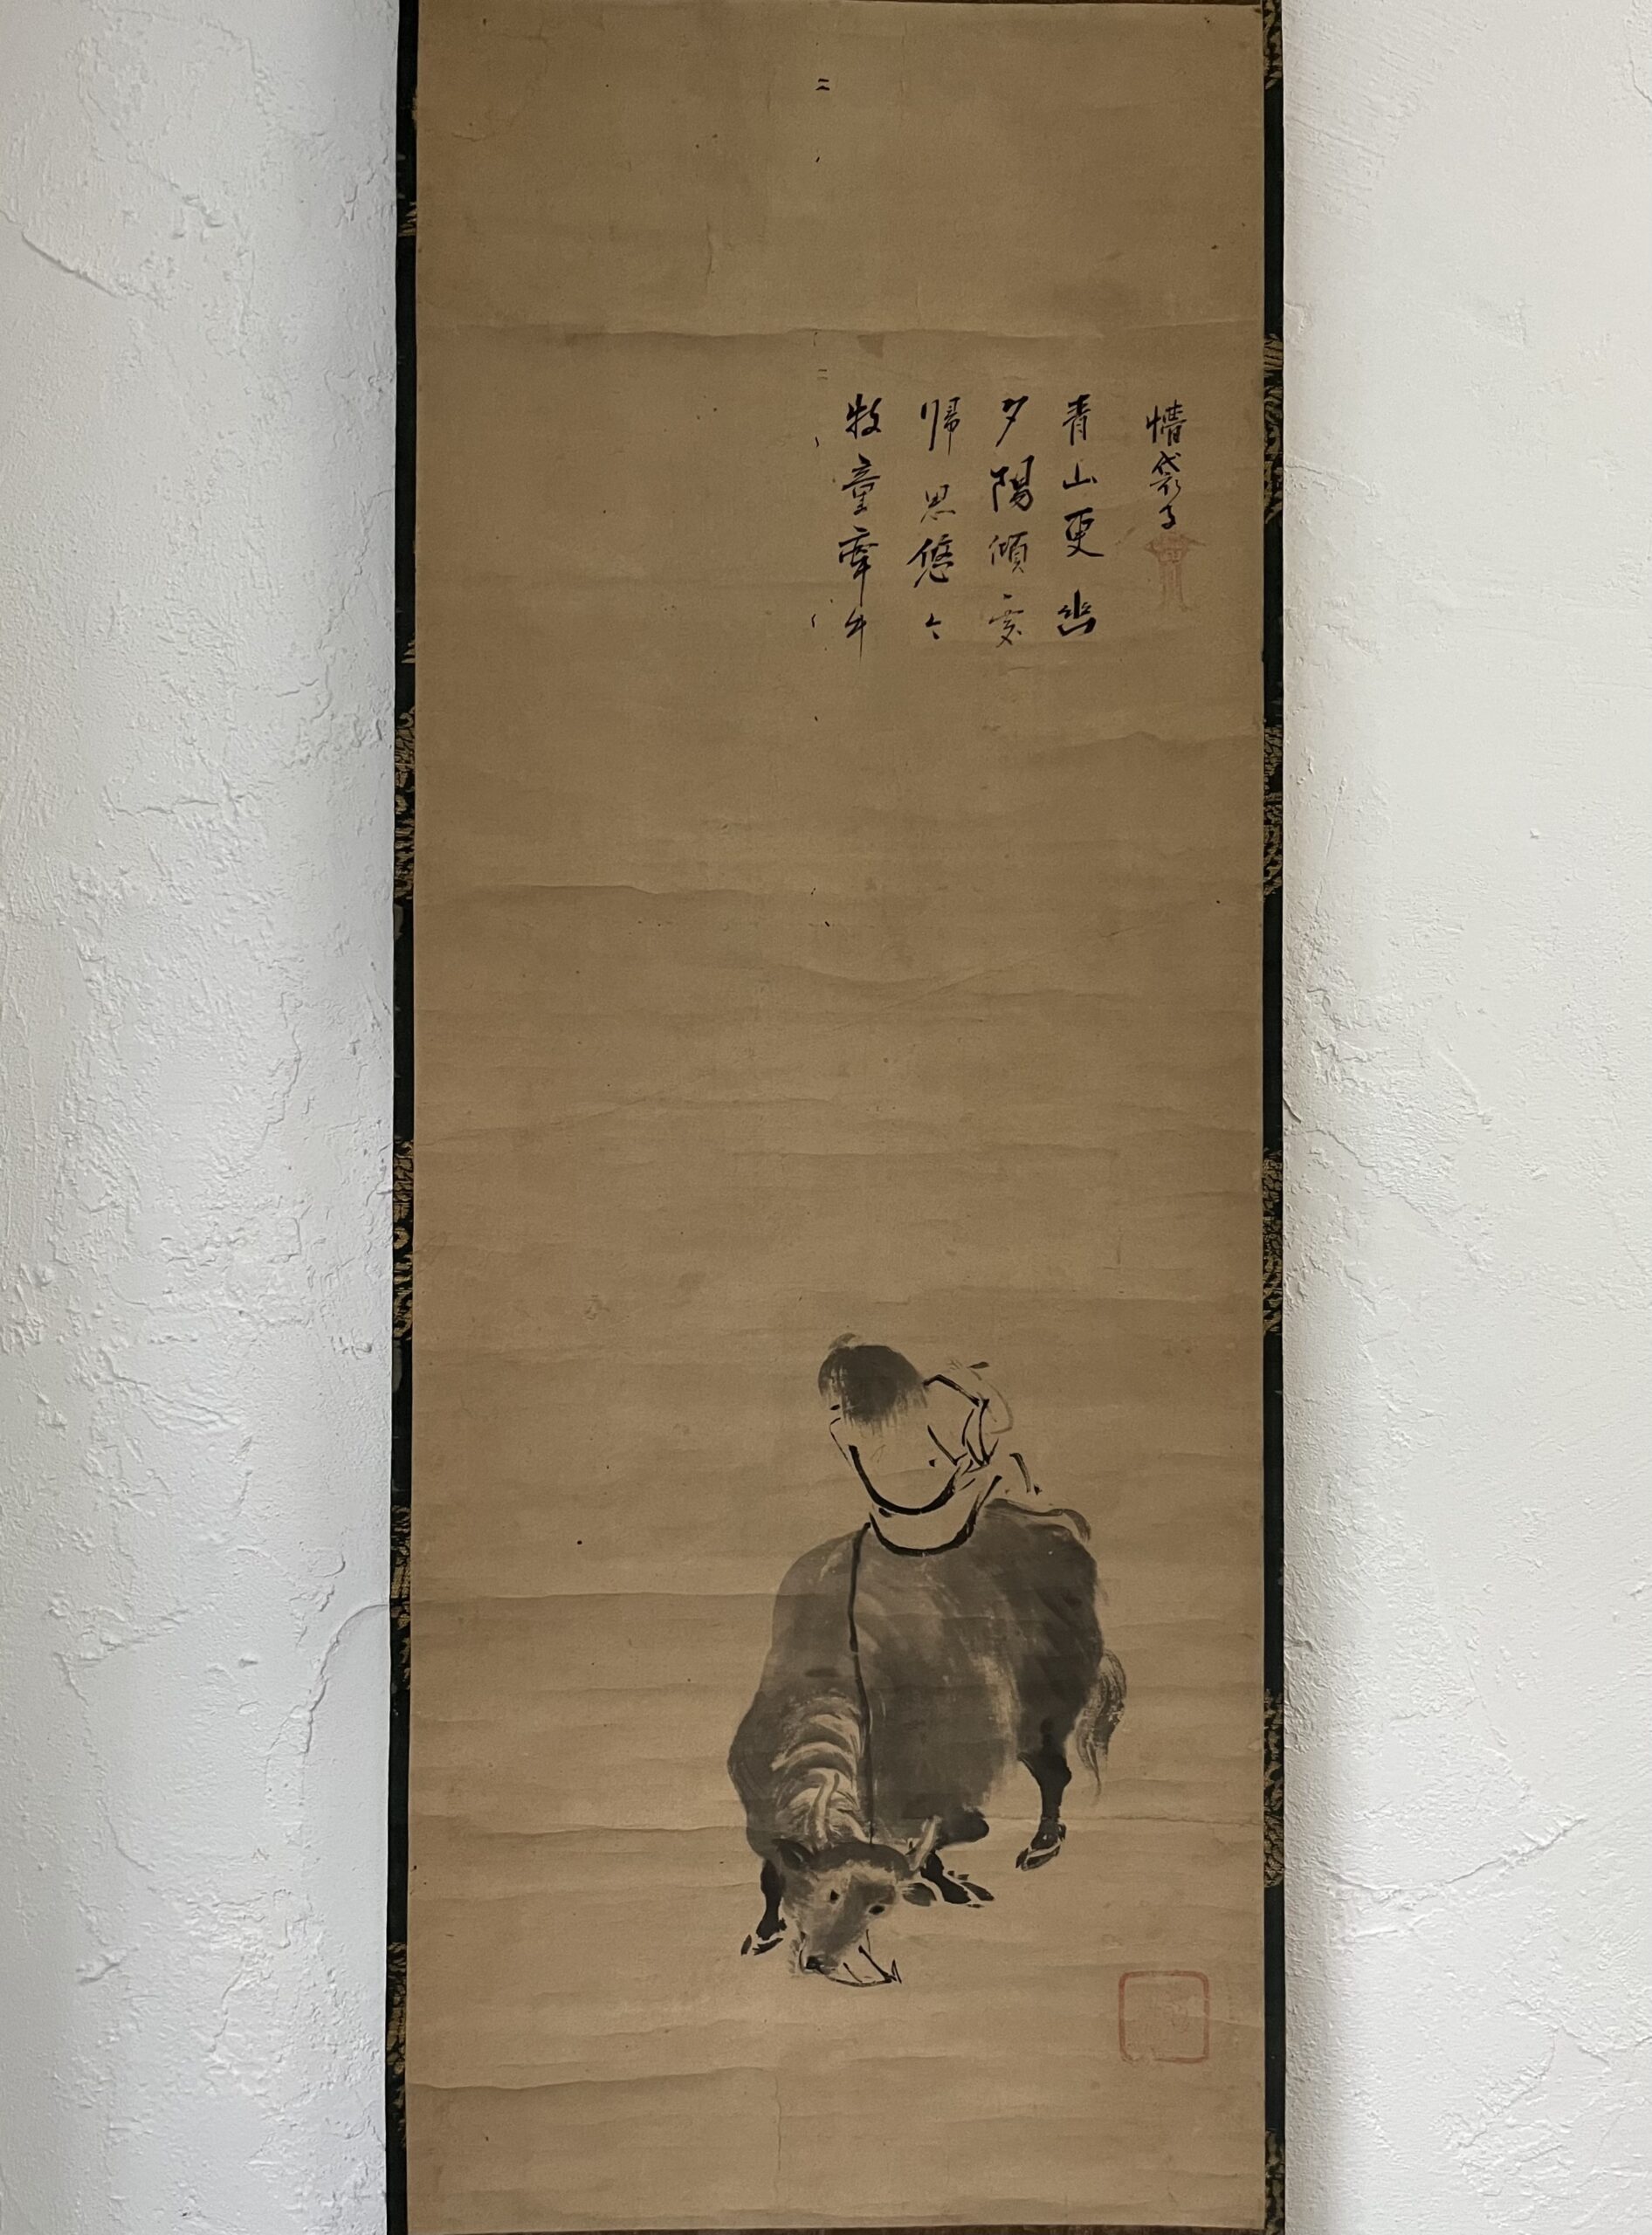 牧童牽牛
帰思悠々
夕陽傾處
青山更幽
袋子